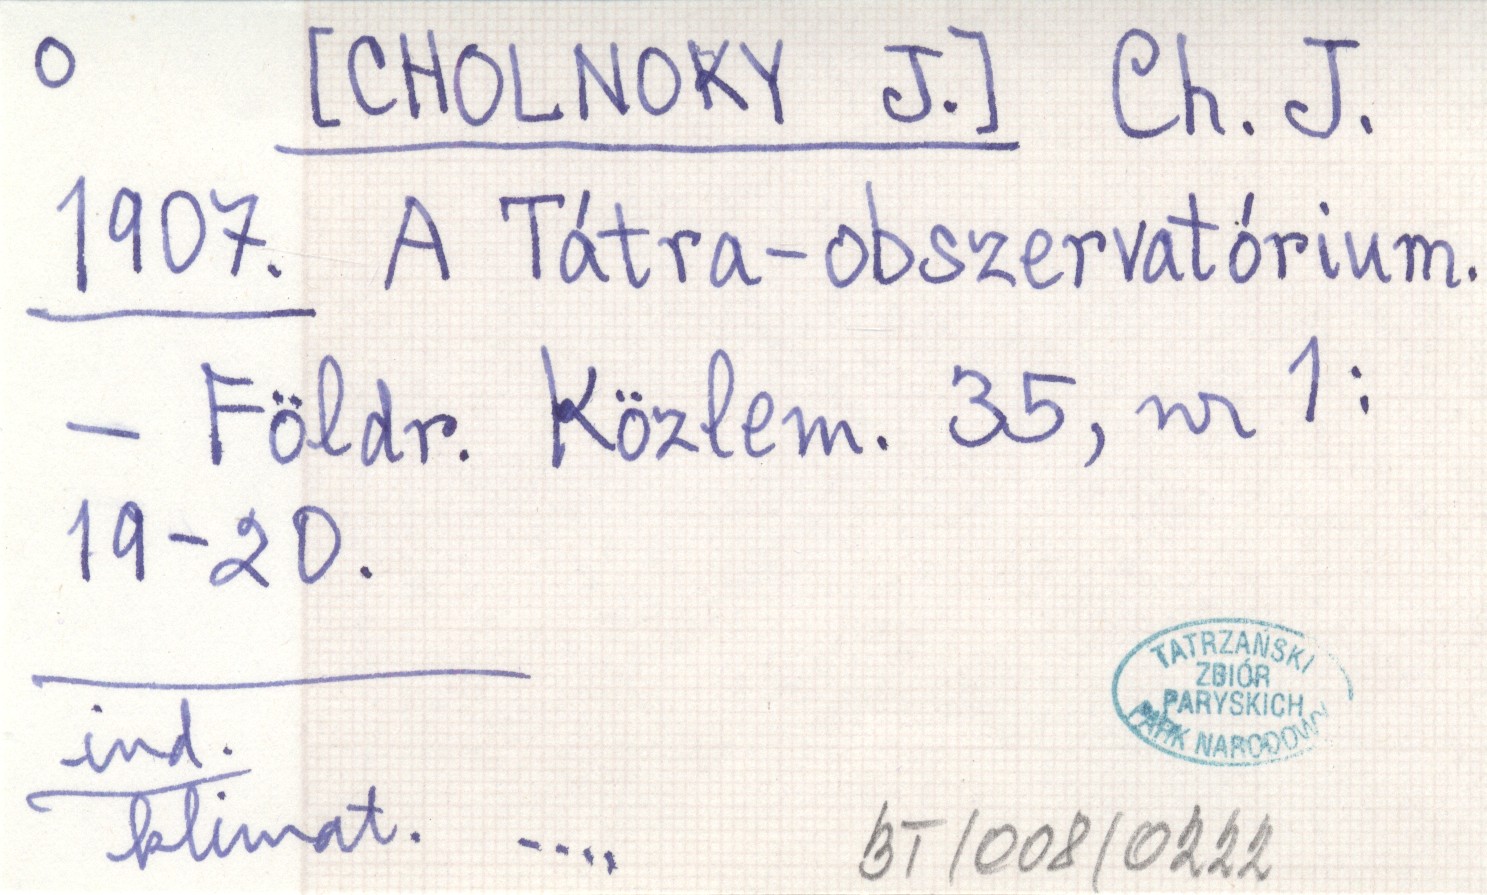 o [CHOLNOKY J.] Ch. J.
1907. A Tátra-obszervatórium.
- Földr. Közlem. 35, nr 1:
19-20.
ind.
klimat. ....
TATRZAŃSKI
ZBIÓR
PARYSKICH
PARK NARODOWY
BT/008/0222